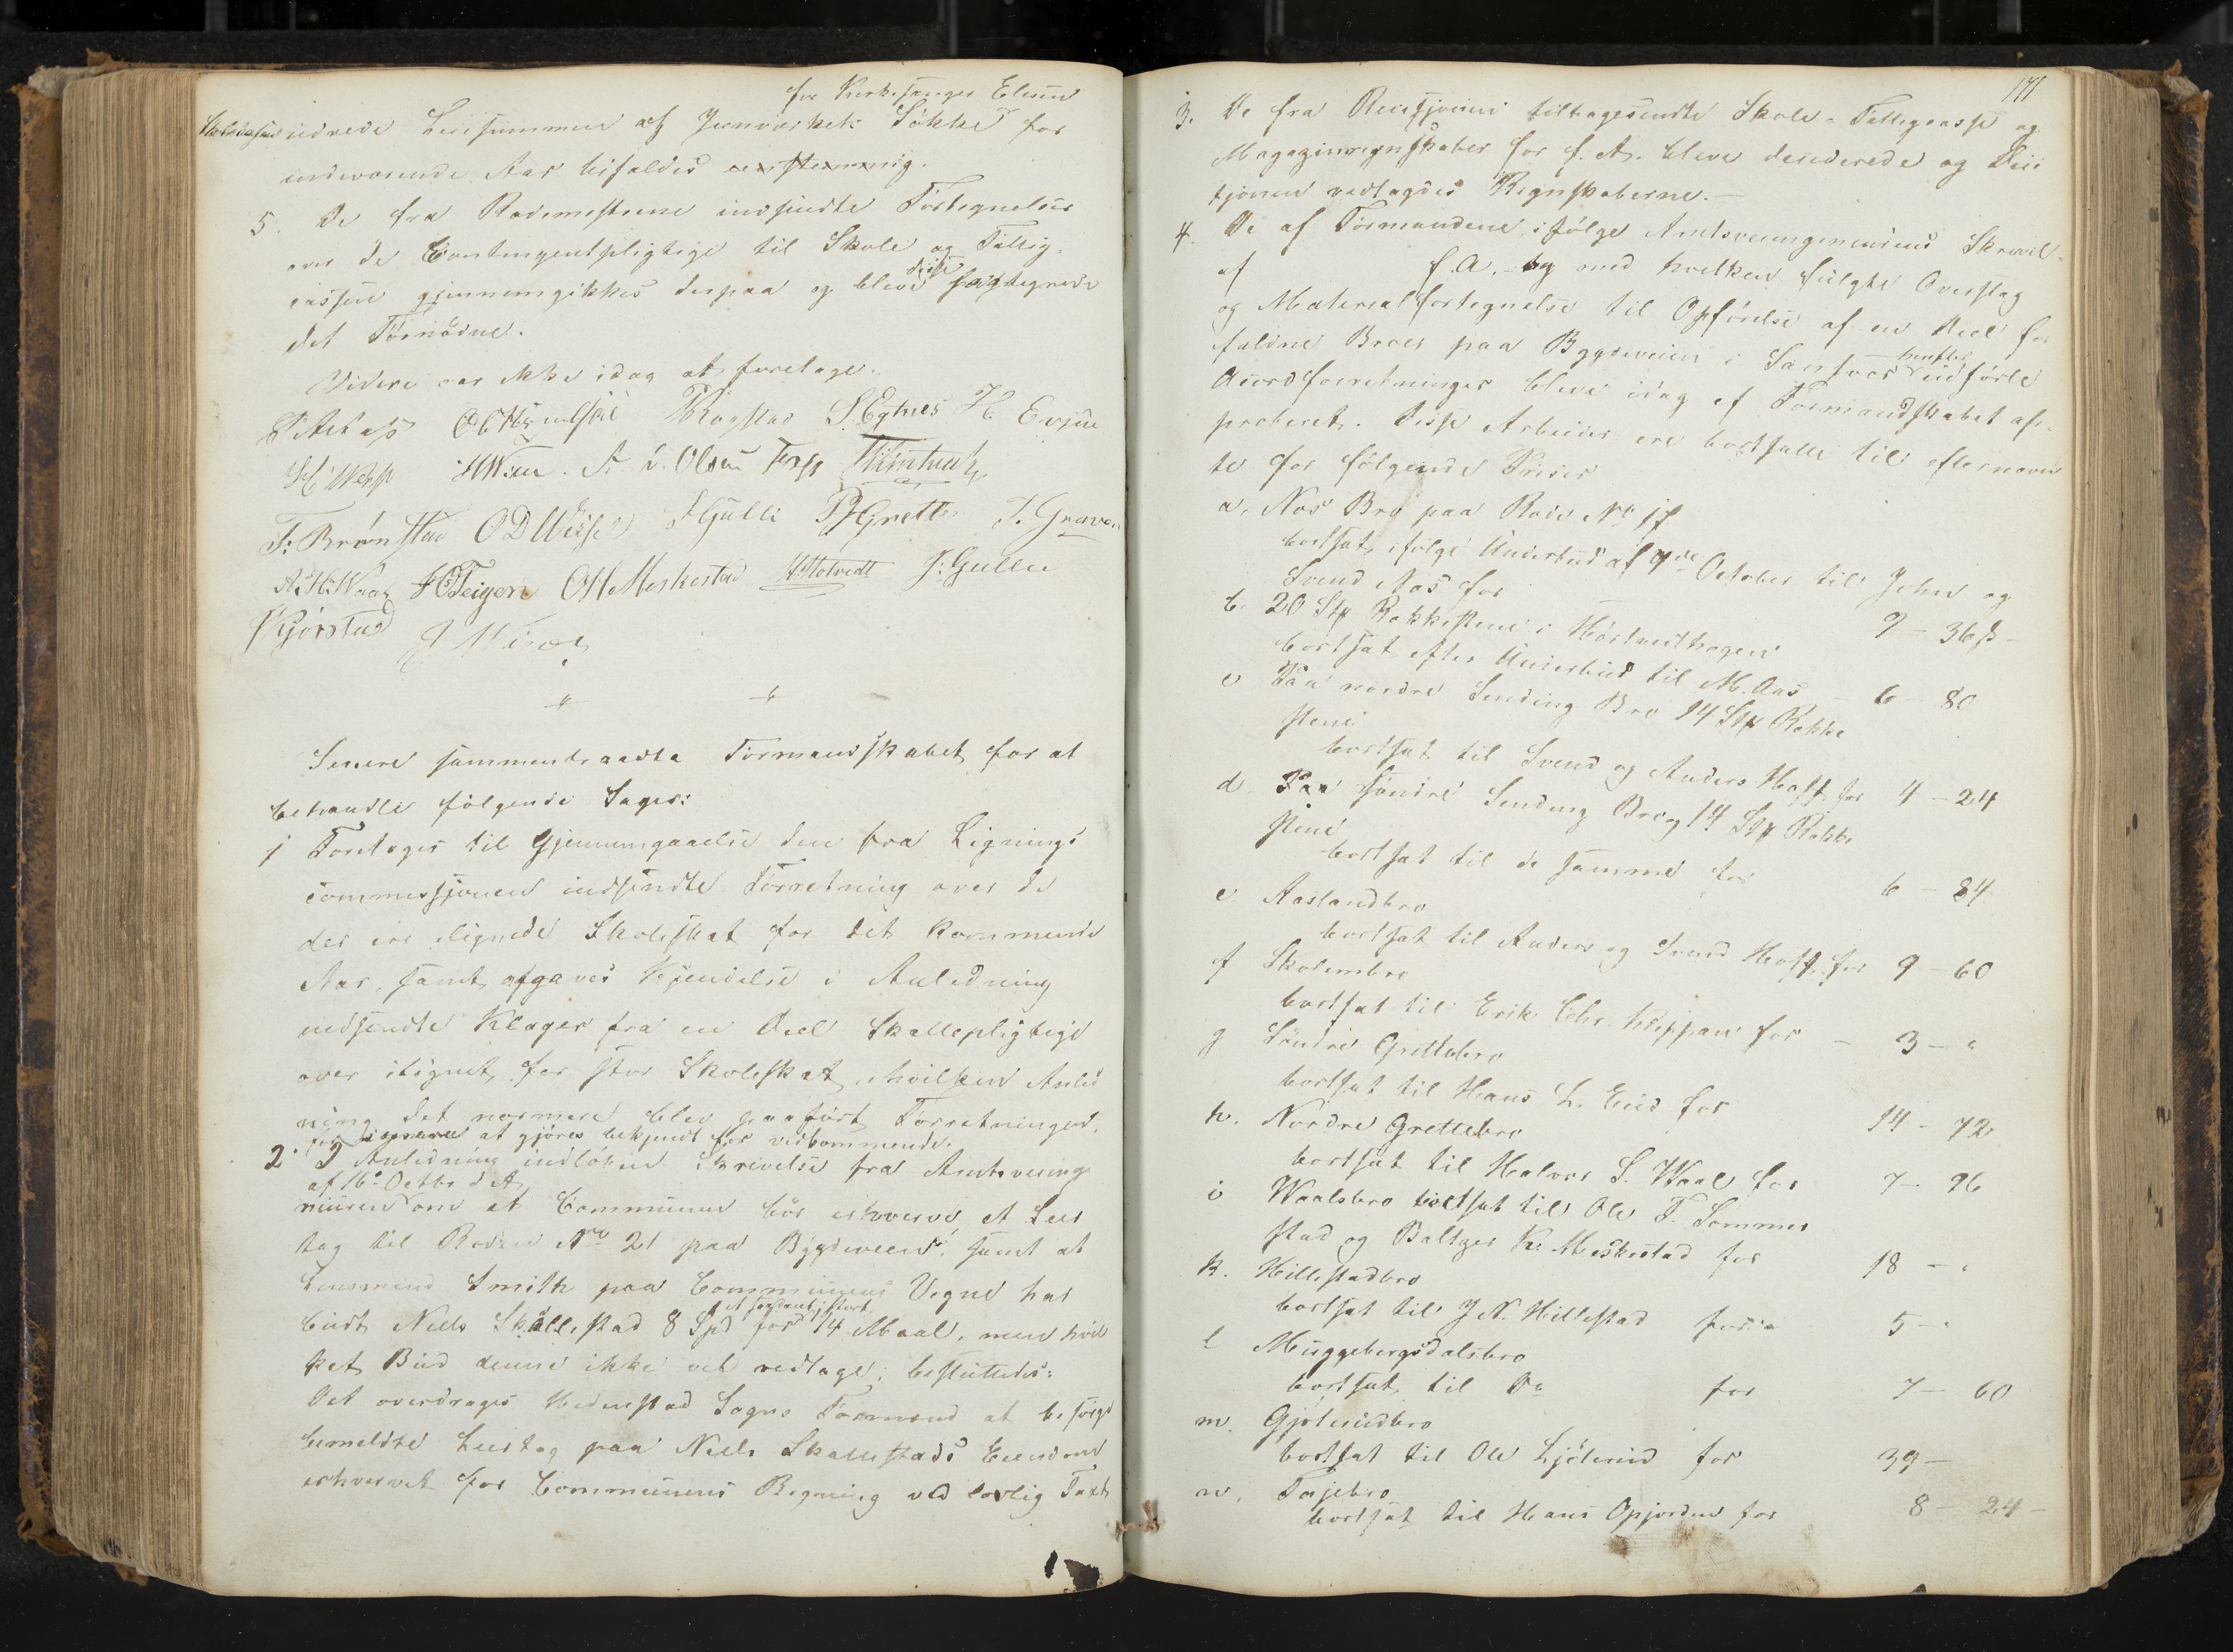 for Kirkesanger Elesen
udrede Leiesummen af Jernverkets Søkke for
indeværende Aar bifaldes eenstemmig.
5. De fra Rodemestrene indsendte Fortegnelser
over de Contingentpligtige til Skole og Fattig-
cassen gjennemgikkes derpaa og bleve disse paategnede
det Fornødne.
Videre var ikke idag at foretage.
Kragstad S. Egtnes H Evjue
A. L. Olsen
F. Brønstad JGulli J. Graven
JOTeigen OHelleskestad HHotvedt J. Gullie
Senere sammentraadte Formandskabet for at
behandle følgende Sager:
1 Foretoges til Gjennemgaaelse den fra Lignings
commissjonen indsendte Forretning over de
der ere ilignede Skoleskat for det kommende
Aar, samt afgaves Kjendelse i Anledning
indsendte Klager fra en Deel Skattepligtige
over ilignet for stor Skoleskat, hvilken Anled
ning det nærmere blev paaført Forretningen,
for at gjøres bekjendt for vedkommende.
2. I Anledning indløben Skrivelse fra Amtsveiinge
af 16de Octbr d. A.
niøren om at Communen bør erhverve et Leer
tag til Roden No 21 paa Bygdeveien, samt at
Lensmand Smith paa Communens Vegne har
et saadant, stort
budt Niels Skallestad 8 Spd for 1/4 Maal, men hvil
ket Bud denne ikke vil vedtage; besluttedes:
Det overdrages Hedenstad Sogns Formænd at besørge
bemeldte Leertag paa Niels Skallestads Eiendom
erhvervet for Communens Regning ved lovlig Taxt
171
3. De fra Revisjonen tilbagesendte Skole- Fattigcasse og
Magazinregnskaber for f. A. bleve deciderede og Deci
sjonen vedlagdes Regnskaberne.—
4. De af Formændene ifølge Amtsveiingeniørens Skrivel-
af f. A. og med hvilken fulgte Overslag
og Materialfortegnelse til Opførelse af en Deel for
faldne Broer paa Bygdeveien i Sandsvær udførte
Acordforretninger bleve idag af Formandskabet ap-
proberet. Disse Arbeider ere bortsatte til efternævn
te for følgende Priser
a. Aas Bro paa Rode No 17
bortsat ifølge Underbud af 9de October til John og
Svend Aas for 9 – 36 ß –
b. 20 Stk Rækkestene i Hørtvedthagen
bortsat efter Underbud til M. Aas – 6 – 80
c Paa nordre Sending Bro 14 Stk Række
stene
bortsat til Svend og Anders Hoff for 4 – 24
d. Paa søndre Sending Bro 14 Stk Række
stene
bortsat til de samme for 6 – 84
e Aaslandbro
bortsat til Anders og Svend Hoff for 9 – 60
f Skolembro
bortsat til Erik Chr. for – 3 – "
g Søndre Grettebro
bortsat til Hans L. Eeid for 14 – 72
h. Nordre Grettebro
bortsat til Halvor S. Waal for 7 – 96
i Waalsbro bortsat til Ole T. Sommer
stad og Baltzer K. Meskestad for 18 – "
k. Hillestadbro
bortsat til J N. Hillestad for 5 – "
l Muggebergsdalsbro
bortsat til Do for 7 – 60
m. Gjølerudbro
bortsat til Ole Gjølerud for 39 –
n. Terjebro
bortsat til Hans Opjorden for 8 – 24 –